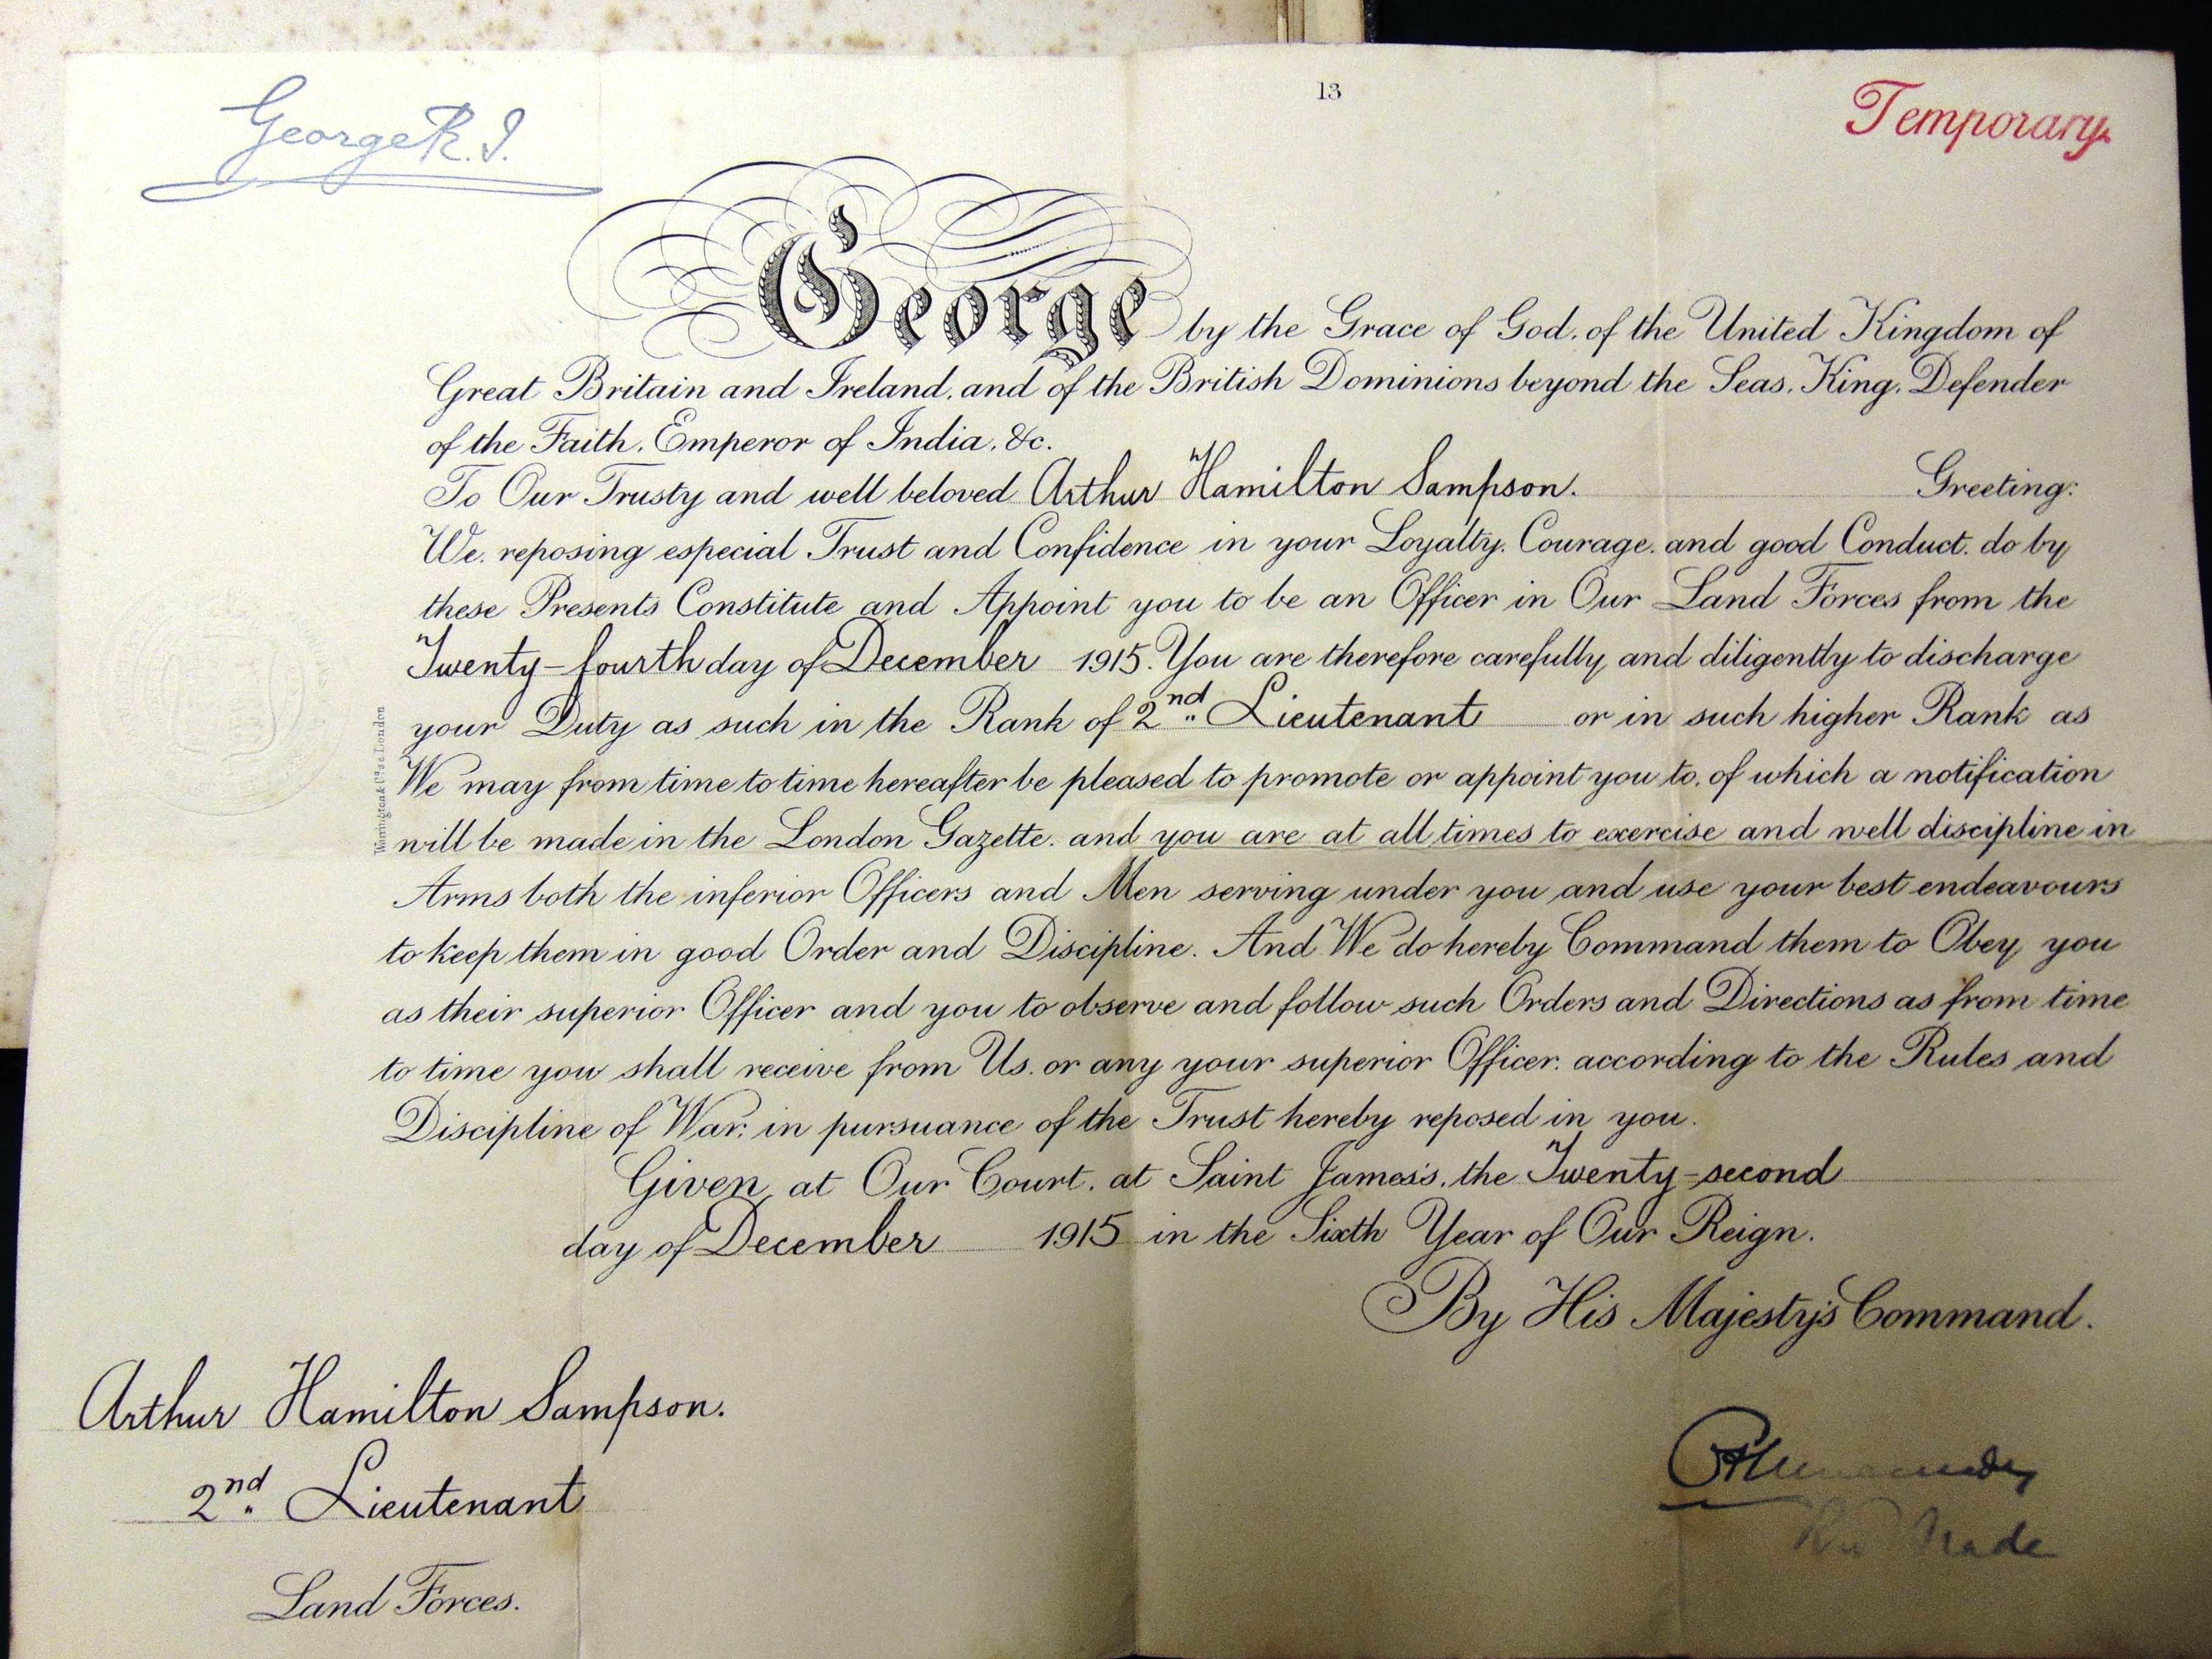 George R.I.
13
Temporary.
George by the Grace of God, of the United Kingdom of
Great Britain and Ireland, and of the British Dominions beyond the Seas, King, Defender
of the Faith, Emperor of India, &c.
To Our Trusty and well beloved Arthur Hamilton Sampson. Greeting:
We, reposing especial Trust and Confidence in your Loyalty, Courage, and good Conduct, do by
these Presents Constitute and Appoint you to be an Officer in Our Land Forces from the
Twenty-fourth day of December 1915. You are therefore carefully and diligently to discharge
your Duty as such in the Rank of 2nd Lieutenant or in such higher Rank as
We may from time to time hereafter be pleased to promote or appoint you to, of which a notification
will be made in the London Gazette, and you are at all times to exercise and well discipline in
Arms both the inferior Officers and Men serving under you and use your best endeavours
to keep them in good Order and Discipline. And We do hereby Command them to Obey you
as their superior Officer and you to observe and follow such Orders and Directions as from time
to time you shall receive from Us, or any your superior Officer, according to the Rules and
Discipline of War, in pursuance of the Trust hereby reposed in you.
Given at Our Court, at Saint James's, the Twenty-second
day of December 1915 in the Sixth Year of Our Reign.
By His Majesty's Command.
Arthur Hamilton Sampson.
2nd Lieutenant
Land Forces.
London